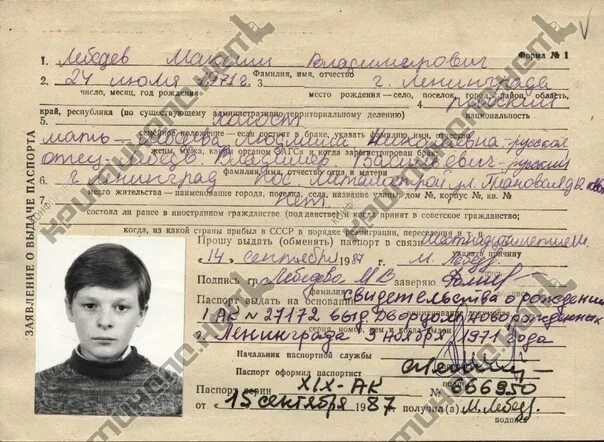 Форма № 1
1. Лебедев Максим Владимирович
Фамилия, имя, отчество
2. 24 июля 1971г. 3. г. Ленинграде
число, месяц, год рождения место рождения — село, поселок, город, район, область,
4. русский
край, республика (по существующему административно-территориальному делению) национальность
5. холост
семейное положение — если состоит в браке, указать фамилию, имя, отчество
мать Людмила Михайловна-русская
жены, мужа, каким органом ЗАГСа и когда зарегистрирован брак
отец-Лебедев Владимир Васильевич-русский
фамилия, имя, отчество отца и матери
6. г. Ленинград пос. Металлострой ул. Плановая д 12
место жительства — наименование города, поселка, села, название улицы, дом №, корпус №, кв. №
7. Нет
состоял ли ранее в иностранном гражданстве (подданстве) и когда принят в советское гражданство;
когда, из какой страны прибыл в СССР в порядке репатриации, переселения и т. п.
ЗАЯВЛЕНИЕ О ВЫДАЧЕ ПАСПОРТА
Прошу выдать (обменять) паспорт в связи
указать причину
14 сентября 1987 г. М. Лебед
подпись
Подпись гр. Лебедева М В заверяю
фамилия
Паспорт выдать на основании свидетельства о рождении
I АК № 27172 выд Дворцом новорожденных
г Ленинграда 3 ноября 1971 года
серия, номер, кем и когда выдан
Начальник паспортной службы
подпись
Паспорт оформил паспортист
подпись
Паспорт серии XIX-АК № 666950
от «15 сентября 1987 получил(а) М. Лебед
подпись